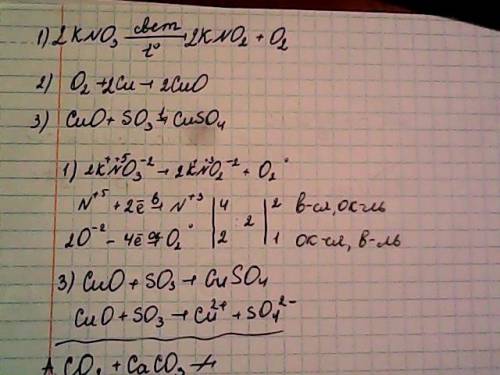 1) 2KNO₃ свет/t° → 2KNO₂ + O₂
2) O₂ + 2Cu → 2CuO
3) CuO + SO₃ → CuSO₄
1) 2K⁺N⁺⁵O₃⁻² → 2K⁺N⁺³O₂⁻² + O₂°
N⁺⁵ + 2ē → N⁺³ | 4 | 2 | 2 в-ся, ок-ль
2O⁻² − 4ē → O₂° | 2 | 1 ок-ся, в-ль
3) CuO + SO₃ → CuSO₄
CuO + SO₃ → Cu²⁺ + SO₄²⁻
+ CaCO₃ ↛